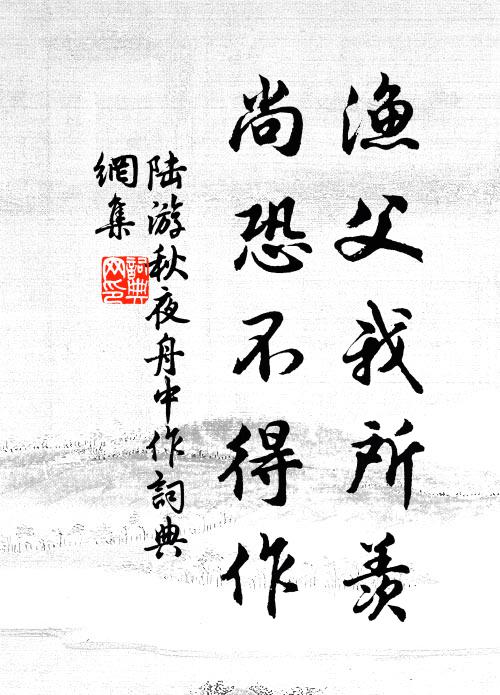 渔父我所羨
尚恐不得作
陆游秋夜舟中作詞典
網集
詞典
网印